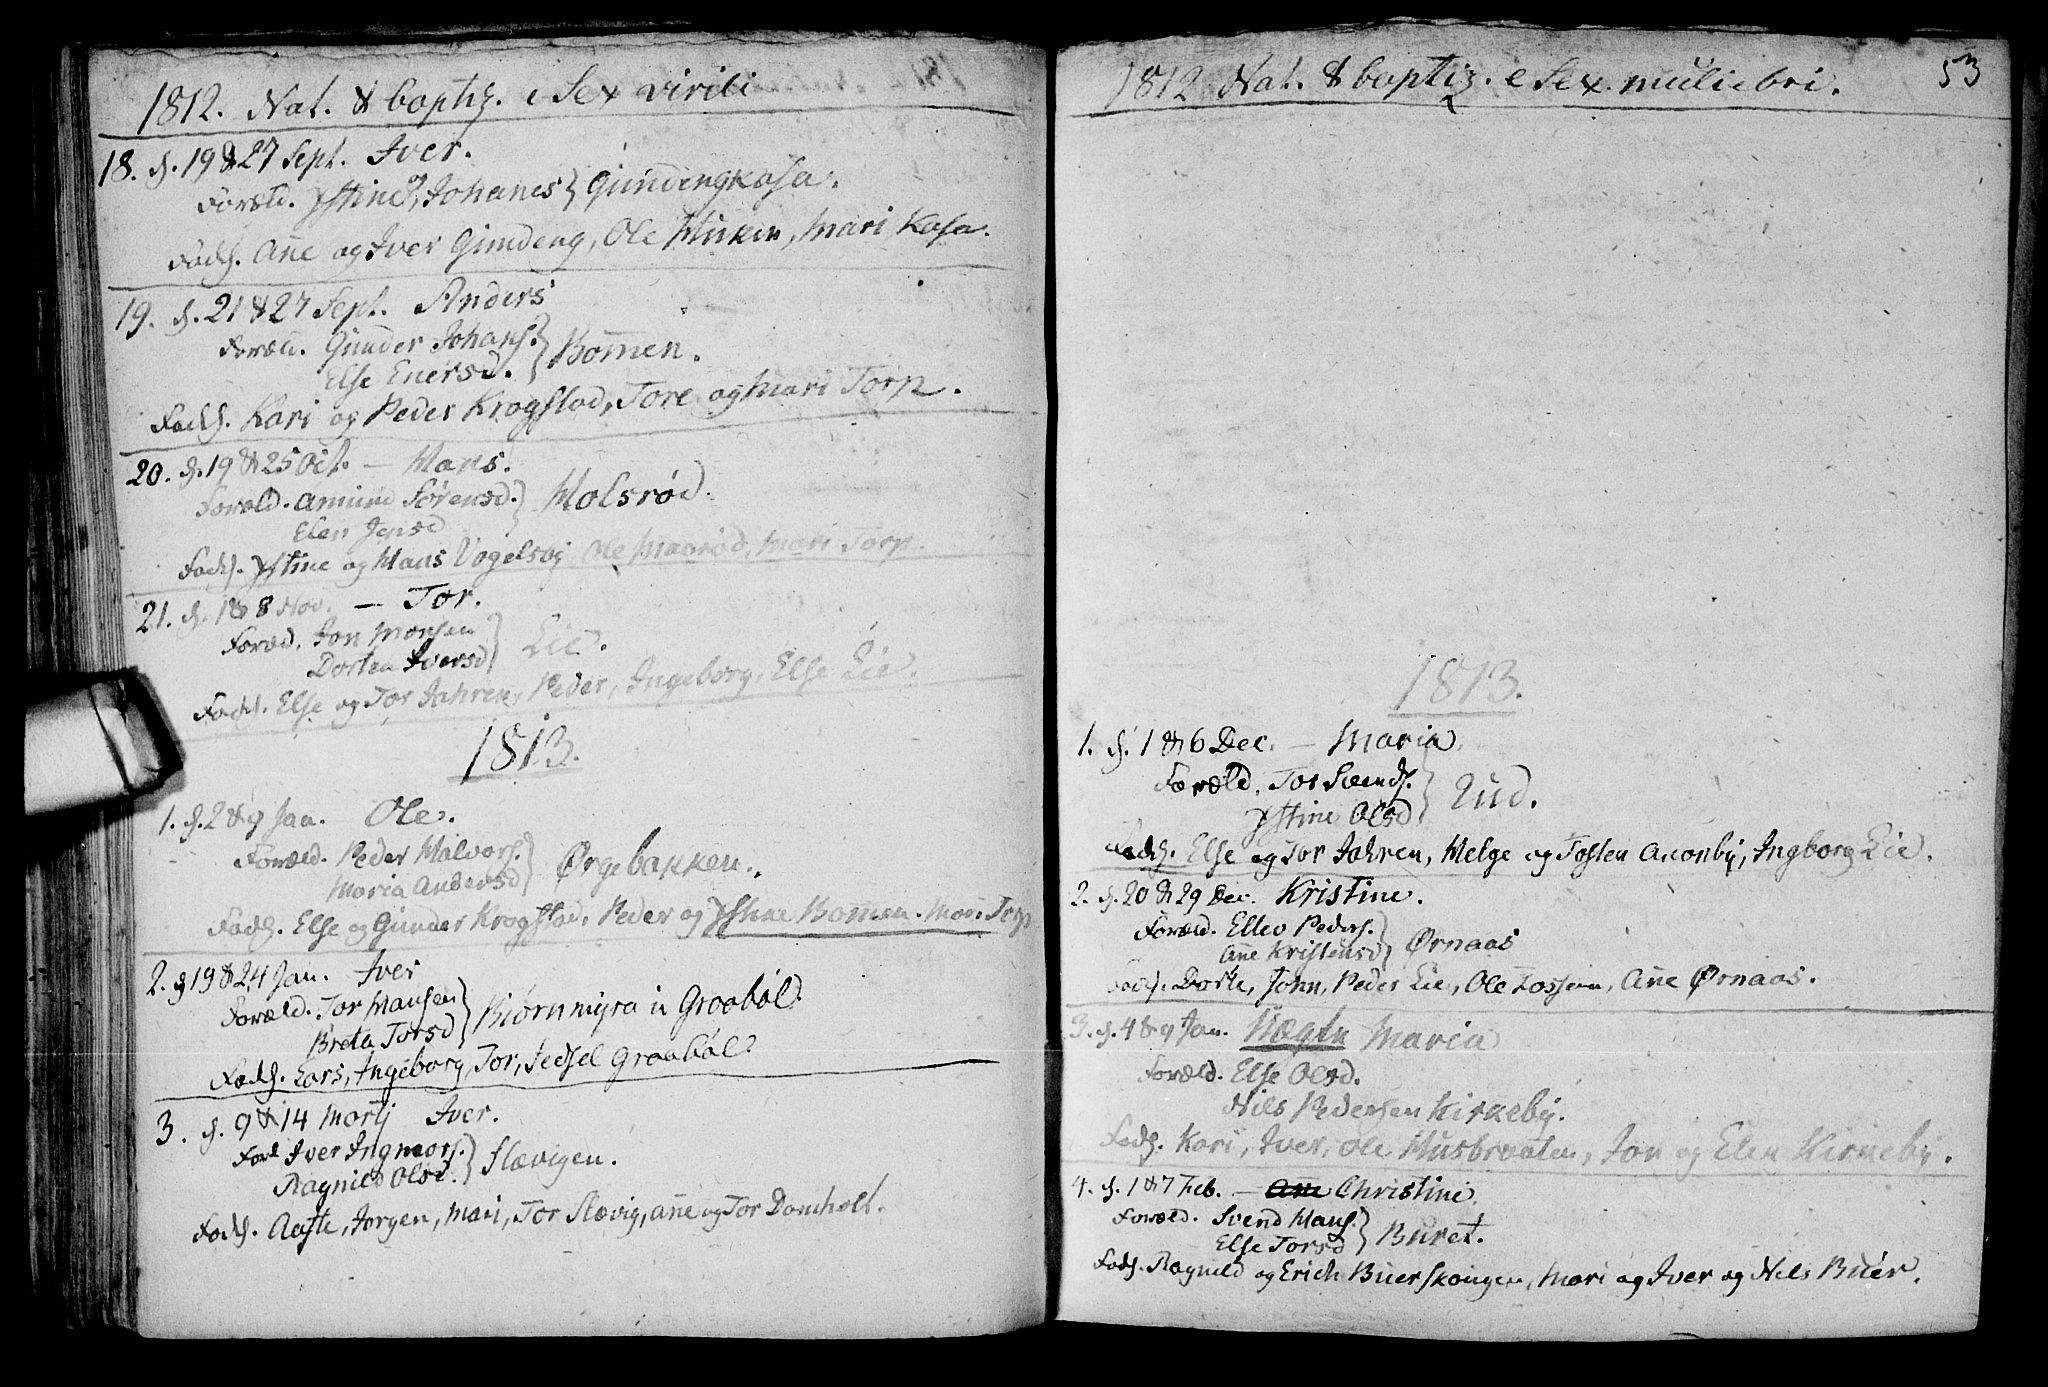 1812. Nat. & baptz. e Sex virili
18. d. 19 & 27 Sept. Iver.
Foræld. Johanes } Gundengkasa.
Fadd. Ane og Iver Gundeng, Ole, Mari Kasa.
19. d. 21 & 27 Sept. Anders
Foræld. Gunder Johans. } Bommen.
Else Enersd.
Fadd. Kari og Peder Krogstad, Tore og Mari Torp.
20. d. 19 & 25 Oct. — Hans.
Foræld. Amund Sørensd. } Holsrød.
Elen Jensd
Fadd. Kistine og Hans Vogelsøj, Ole, Mari Torp.
21. d. 1 & 8 Nov. — Tor.
Foræld. Jon } Lie.
Dorten Iversd
Fadd. Else og Tor Jahren, Peder, Ingeborg, Else Lie.
1813.
1. d. 2 & 9 Jan. Ole.
Foræld. Peder Halvors. } Ørgebakken.
Maria Andersd
Fadd. Else og Gunder Krogstad, Peder og Kistine Bommen. Mari Torp
2. d 19 & 24 Jan. Iver
Foræld. Tor Hansen } Biørnmyra u Graabøl.
Breta Torsd
Fadd. Lars, Ingeborg, Tor, Sedsel Graabøl.
3. d. 9 & 14 Martj Iver.
Foræl Iver Ingvors. } Slævigen.
Ragnild Olsd.
Fadd. Aaste, Jorgen, Mari, Tor Slævig, ane og Tor Damholt.
1812 Nat. & baptiz. e Sex. muliebri. 53
1813.
1. d. 1 & 6 Dec. — Maria.
Foræld. Tor Svends. } Rud.
Kistine Olsd
Fadd. Else og Tor Jahren, Helge og Tosten, Ingborg Lie.
2. d. 20 & 29 Dec. Kristine.
Foræld. Ellev Peders. } Ørnaas
Ane Kristensd
Fadd. Dorte, John, Peder Lie, Ole, Ane Ørnaas.
3. d. 4 & 9 Jan. Uægte Maria
Foræld. Else Olsd.
Nils Pedersen Kirkeby.
Fadd. Kari, Iver, Ole Husbraaten, Jon og Elen Kirkeby.
4. d. 1 & 7 Feb. — Ane Christine.
Foræld. Svend Hans. } Buret.
Else Torsd
Fadd. Ragnild og Erich Buerskougen, Mari og Iver og Nils Buer.